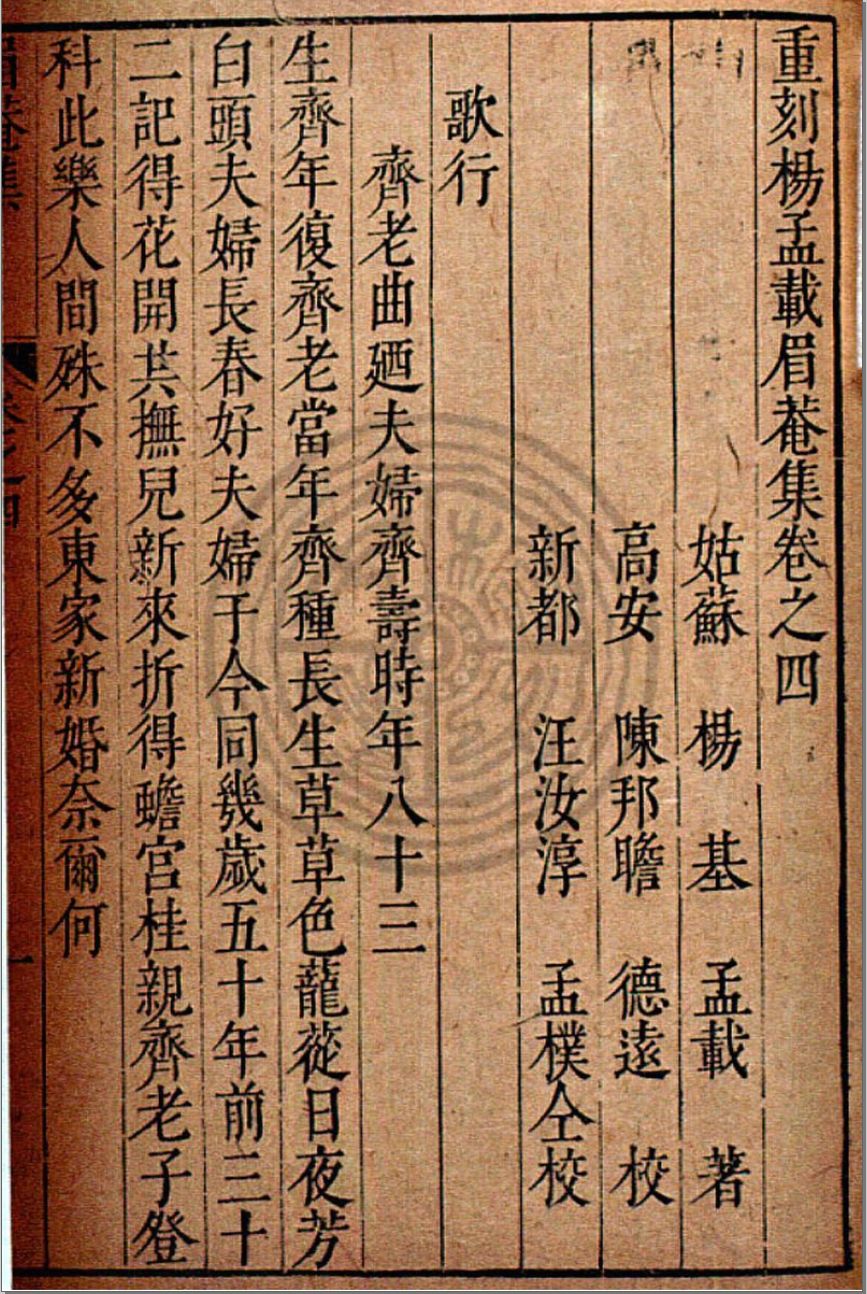 重刻楊孟載眉菴集卷之四
姑蘇 楊 基 孟載 著
高安 陳邦瞻 德遠 校
新都 汪汝淳 孟樸仝校
歌行
齊老曲廼夫婦齊壽時年八十三
生齊年復齊老當年齊種長生草草色蘢蓯日夜芳
白頭夫婦長春好夫婦于今同幾歲五十年前三十
二記得花開共撫兒新來折得蟾宮桂親齊老子登
科此樂人間殊不多東家新婚奈爾何